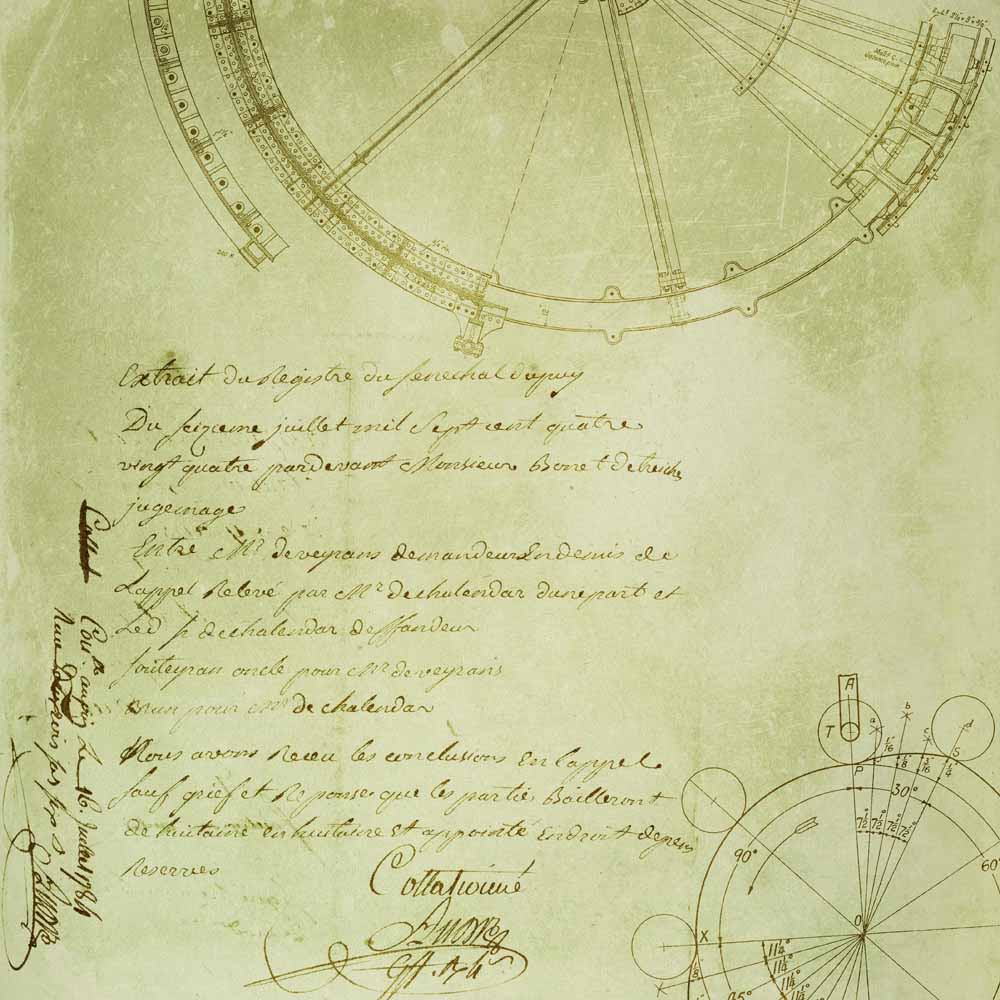 Extrait du Registre du senechal dupuy
Du seizieme juillet mil Sept cent quatre
vingt quatre pardevant Monsieur Bonet detreiches
jugemage
Entre Mr. deveyrans demandeur En demis de
Lappel Relevé par Mr. dechalendar dune part et
Led sr. dechalendar deffandeur
souteyran oncle pour Mr. deveyrans
Brun pour Mr. de chalendar
Nous avons Receu les conclusions En lappel
sauf grief et Reponse que les partie Bailleront
de huitaine en huitaine Et appointé En droit depens
Reserves
Collationné
Collat
Con le
Le 16. Juillet 1784
A
T
a
b
c
d
S
P
1/16
1/8
3/16
1/4
30°
7½° 7½° 7½° 7½°
90°
60°
O
X
11¼°
11¼°
11¼°
11¼°